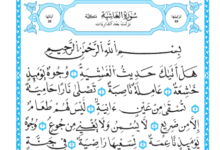 سُورَةُ الغَاشِيَةِ
بِسْمِ اللَّهِ الرَّحْمَٰنِ الرَّحِيمِ
هَلْ أَتَىٰكَ حَدِيثُ الْغَٰشِيَةِ ۝ وُجُوهٌ يَوْمَئِذٍ
خَٰشِعَةٌ ۝ عَامِلَةٌ نَّاصِبَةٌ ۝ تَصْلَىٰ نَارًا حَامِيَةً
۝ تُسْقَىٰ مِنْ عَيْنٍ ءَانِيَةٍ ۝ لَّيْسَ لَهُمْ طَعَامٌ
إِلَّا مِن ضَرِيعٍ ۝ لَّا يُسْمِنُ وَلَا يُغْنِي مِن جُوعٍ ۝ وُجُوهٌ
يَوْمَئِذٍ نَّاعِمَةٌ ۝ لِّسَعْيِهَا رَاضِيَةٌ ۝